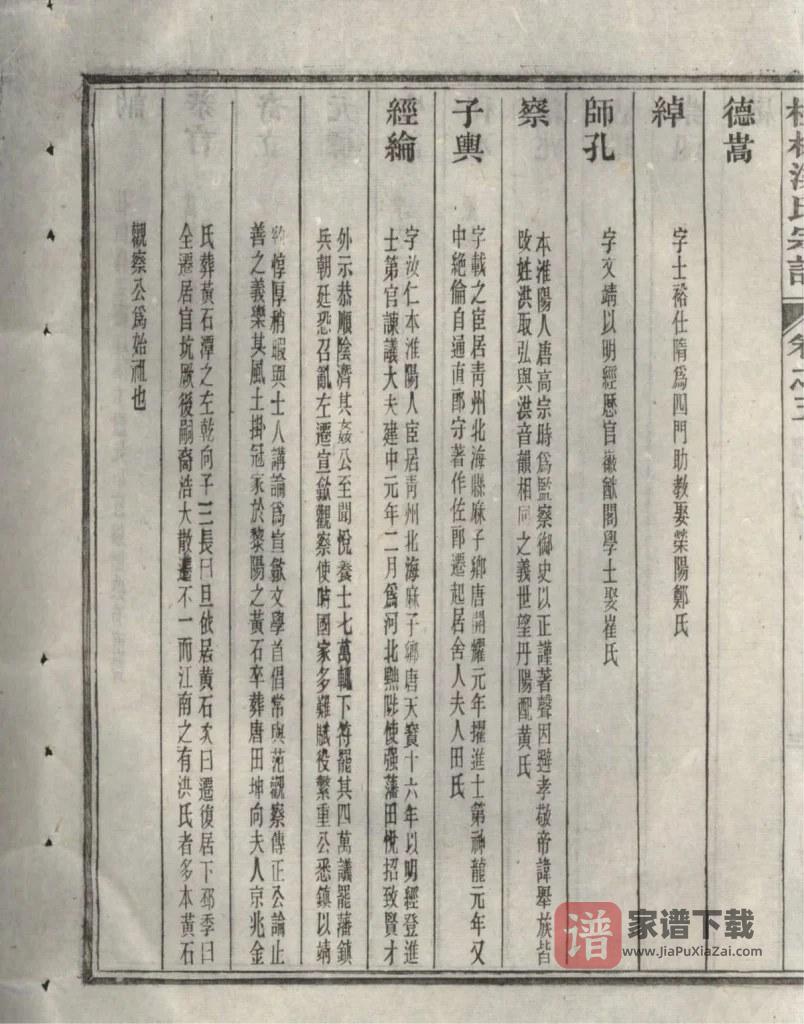 桂林洪氏宗譜 卷之三
德嵩
綽
字士裕仕隋爲四門助教娶榮陽鄭氏
師孔
字文靖以明經歷官徽猷閣學士娶崔氏
察
本淮陽人唐高宗時爲監察御史以正謹著聲因避孝敬帝諱舉族皆
改姓洪取弘與洪音韻相同之義世望丹陽配黄氏
子輿
字載之宦居靑州北海縣麻子鄉唐開耀元年擢進士第神龍元年又
中絶倫自通直郎守著作佐郎遷起居舍人夫人田氏
經綸
字汝仁本淮陽人宦居靑州北海麻子鄉唐天寳十六年以明經登進
士第官諫議大夫建中元年二月爲河北黜陟使强藩田悅招致賢才
外示恭順陰濟其姦公至聞悅養士七萬輒下符罷其四萬議罷藩鎮
兵朝廷恐召亂左遷宣歙觀察使時國家多難賦役繁重公悉鎮以靖
惇厚稍暇與士人講論爲宣歙文學首倡常與范觀察傳正公論止
善之義樂其風土掛冠家於黎陽之黄石卒葬唐田坤向夫人京兆金
氏葬黄石潭之左乾向子三長曰旦依居黄石次曰遷復居下邳季曰
全遷居官坑厥後嗣裔浩大散遷不一而江南之有洪氏者多本黄石
觀察公爲始祖也
譜 家谱下载
www.JiaPuXiaZai.com